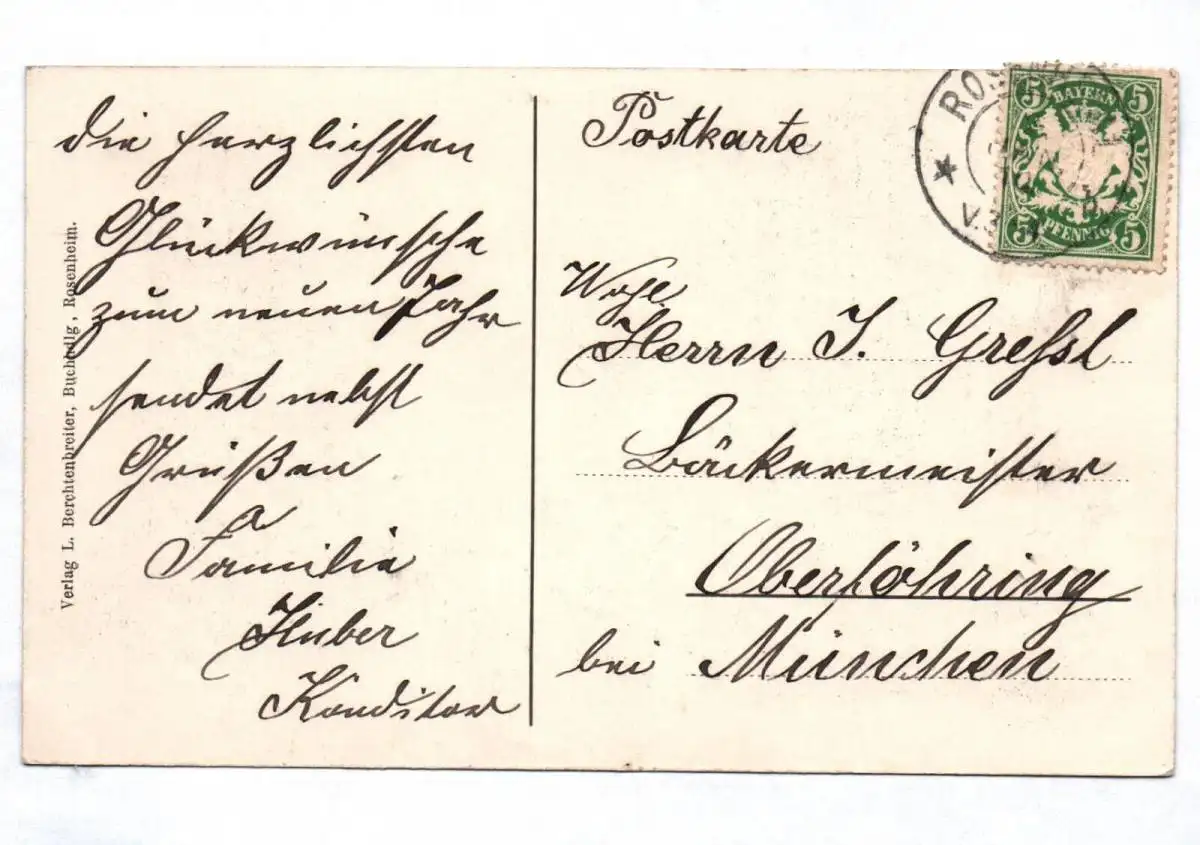 die herzlichsten
Glückwünsche
zum neuen Jahr
sendet nebst
Grüßen
Familie
Huber
Konditor
Verlag L. Berchtenbreiter, Buchhdlg, Rosenheim.
Postkarte
5 BAYERN 5
5 PFENNIG 5
Wohl
Herrn J. Greßl
Bäckermeister
Oberföhring
bei München